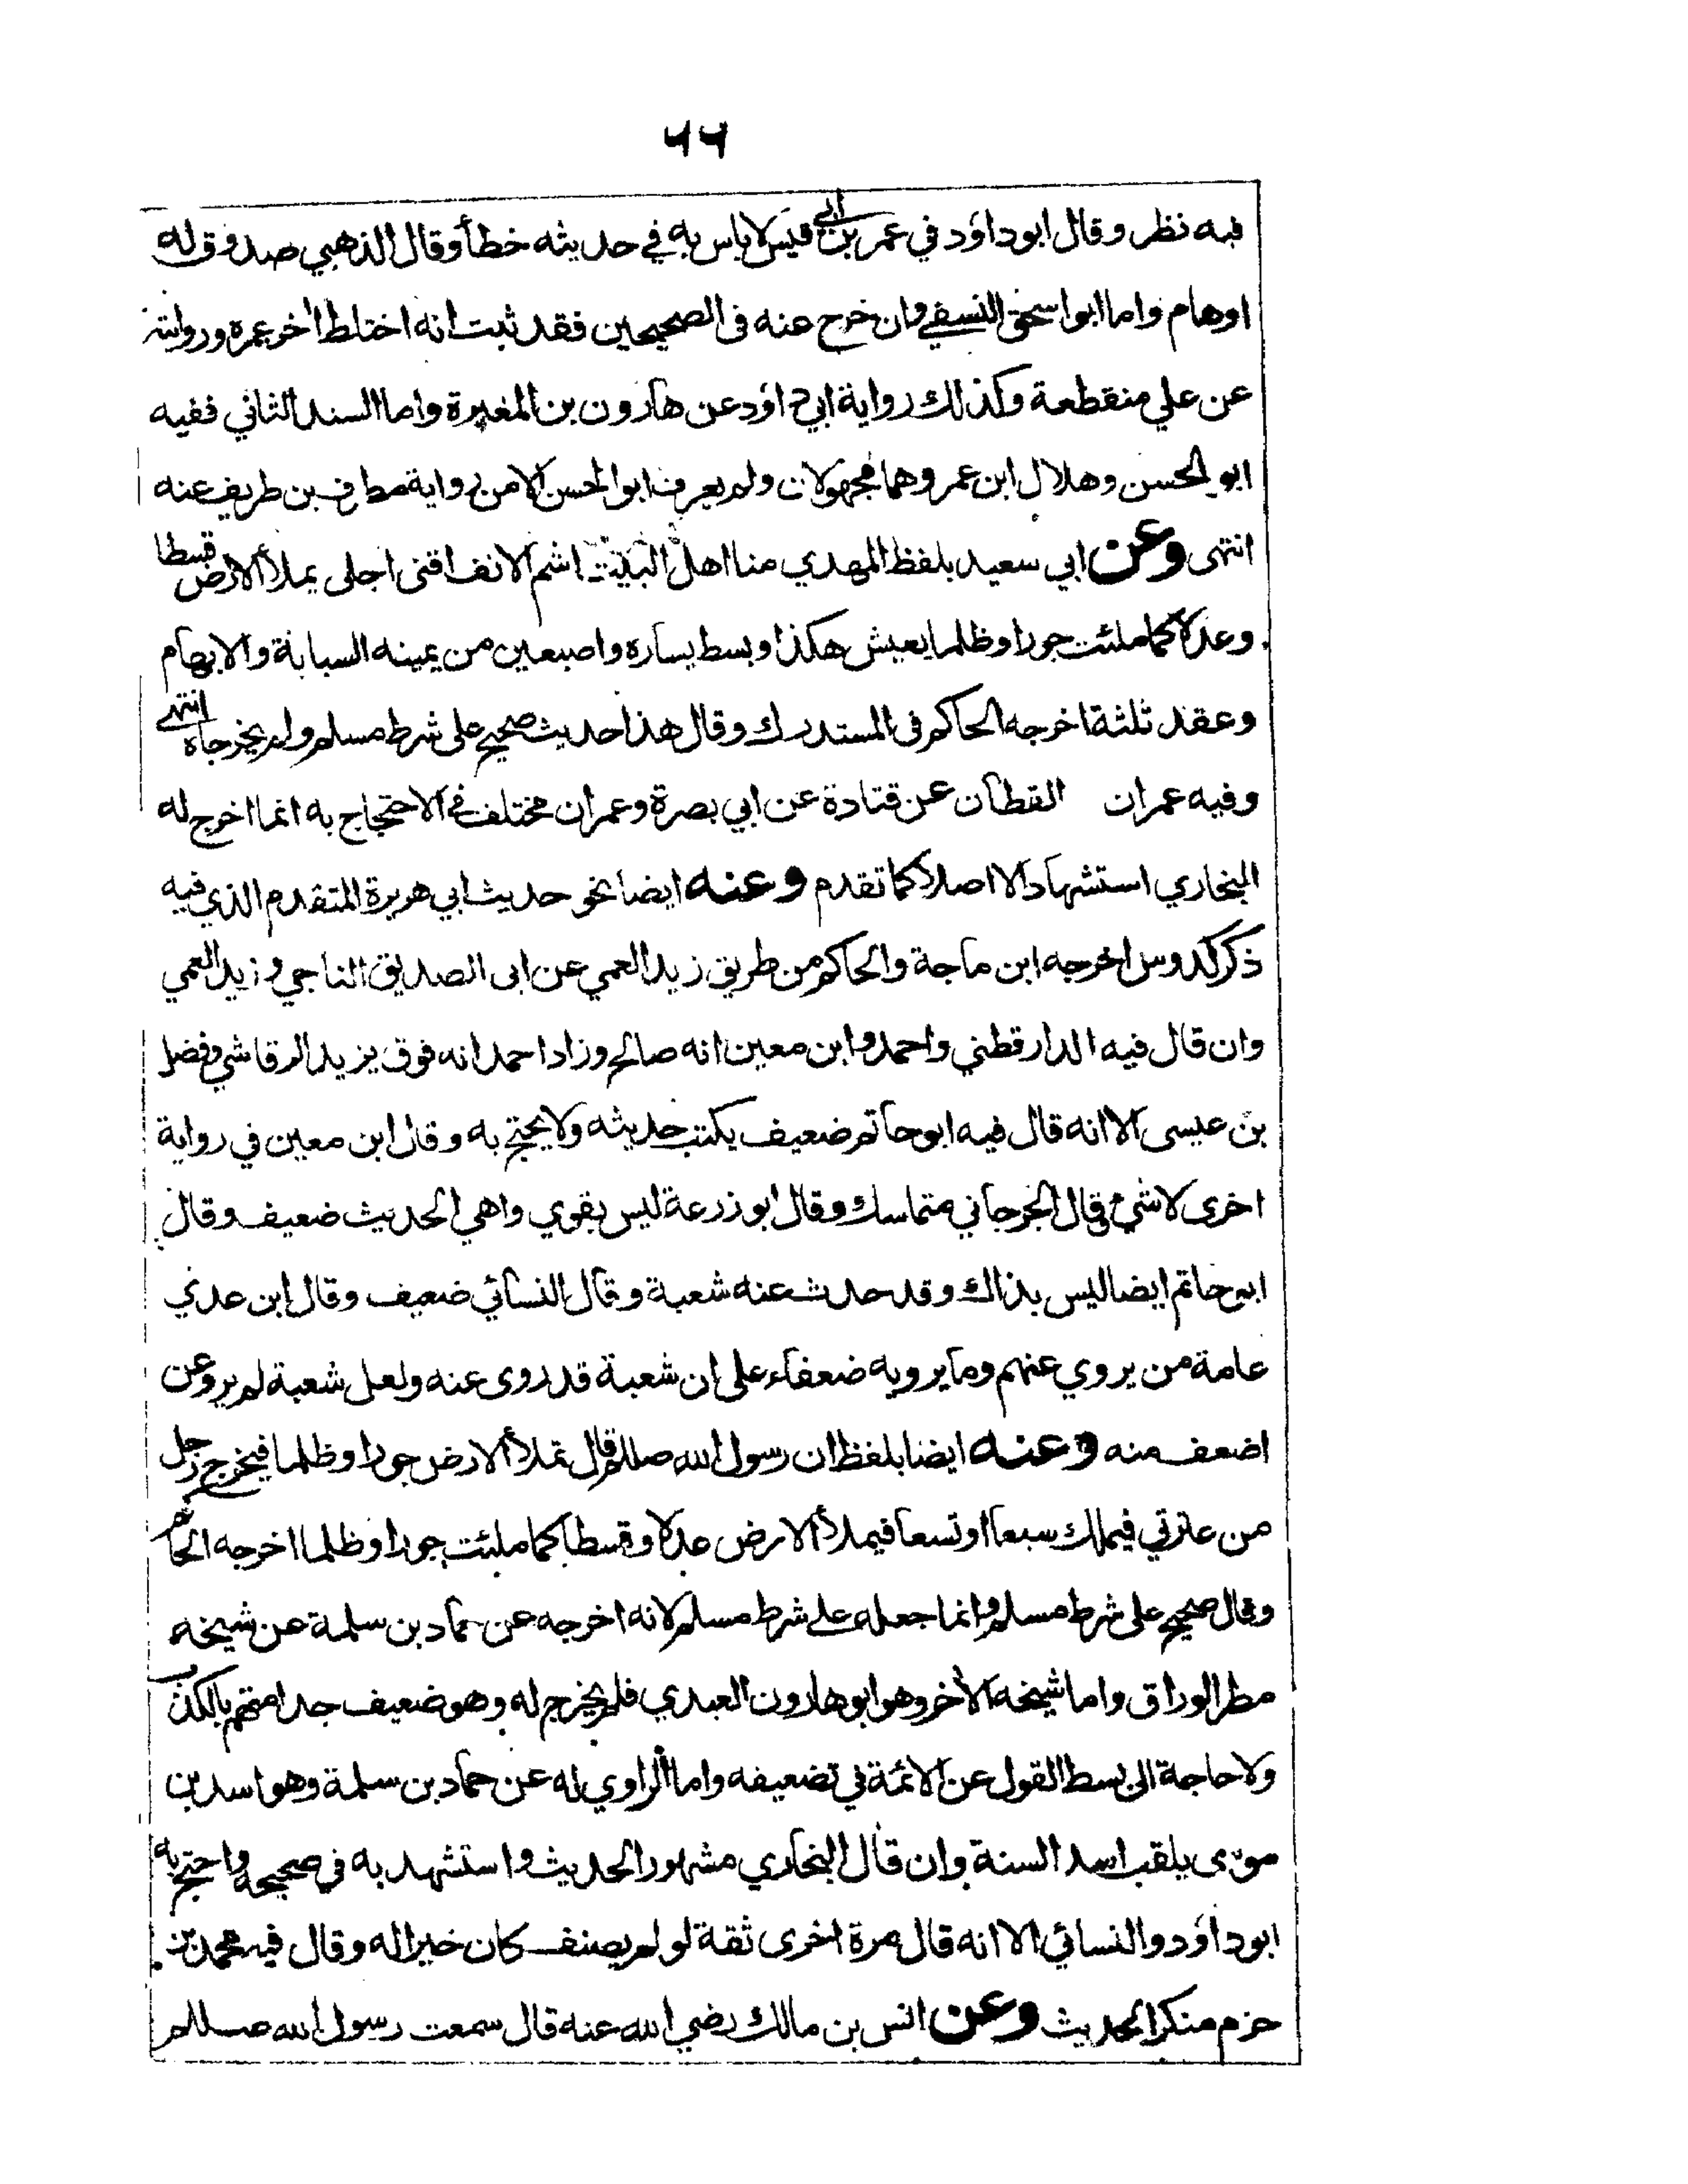 ٦٦
فيه نظر وقال ابوداؤد في عمر بن ابي قيس لاباس به في حديثه خطأ وقال الذهبي صدوق له
اوهام واما ابواسحق النسفي وان خرج عنه فى الصحيحين فقد ثبت انه اختلط اخر عمره وروايته
عن علي منقطعة وكذلك رواية ابي داؤد عن هارون بن المغيرة واما السند الثاني ففيه
ابو الحسن وهلال ابن عمر وهما مجهولان ولم يعرف ابوالحسن الا من رواية مطرف بن طريف عنه
انتهى وعن ابي سعيد بلفظ المهدي منا اهل البيت اشم الانف اقنى اجلى يملأ الارض قسطا
وعدلا كما ملئت جورا وظلما يعيش هكذا وبسط يساره واصبعين من يمينه السبابة والابهام
وعقد ثلثة اخرجه الحاكم فى المستدرك وقال هذا حديث صحيح على شرط مسلم ولم يخرجاه انتهى
وفيه عمران القطان عن قتادة عن ابي بصرة وعمران مختلف في الاحتجاج به انما اخرج له
البخاري استشهادا لا اصلا كما تقدم وعنه ايضا نحو حديث ابي هريرة المتقدم الذي فيه
ذكر كدوس اخرجه ابن ماجة والحاكم من طريق زيد العمي عن ابى الصديق الناجي وزيد العمي
وان قال فيه الدارقطني واحمد وابن معين انه صالح وزاد احمد انه فوق يزيد الرقاشي وفضل
بن عيسى الا انه قال فيه ابوحاتم ضعيف يكتب حديثه ولا يحتج به وقال ابن معين في رواية
اخرى لاشئ وقال الجرجاني متماسك وقال ابو زرعة ليس بقوي واهي الحديث ضعيف وقال
ابو حاتم ايضا ليس بذاك وقد حدث عنه شعبة وقال النسائي ضعيف وقال ابن عدي
عامة من يروي عنهم وما يرويه ضعفاء على ان شعبة قد روى عنه ولعل شعبة لم يرو عن
اضعف منه وعنه ايضا بلفظ ان رسول الله صللم قال تملأ الارض جورا وظلما فيخرج رجل
من عترتي فيملك سبعا او تسعا فيملأ الارض عدلا وقسطا كما ملئت جورا وظلما اخرجه الحاكم
وقال صحيح على شرط مسلم وانما جعله على شرط مسلم لانه اخرجه عن حماد بن سلمة عن شيخه
مطر الوراق واما شيخه الاخر وهو ابو هارون العبدي فلم يخرج له وهو ضعيف جدا متهم بالكذب
ولا حاجة الى بسط القول عن الائمة في تضعيفه واما الراوي له عن حماد بن سلمة وهو اسد بن
موسى يلقب اسد السنة وان قال البخاري مشهور الحديث واستشهد به في صحيحه واحتج به
ابوداؤد والنسائي الا انه قال مرة اخرى ثقة لو لم يصنف كان خيرا له وقال فيه محمد بن
حزم منكر الحديث وعن انس بن مالك رضي الله عنه قال سمعت رسول الله صللم